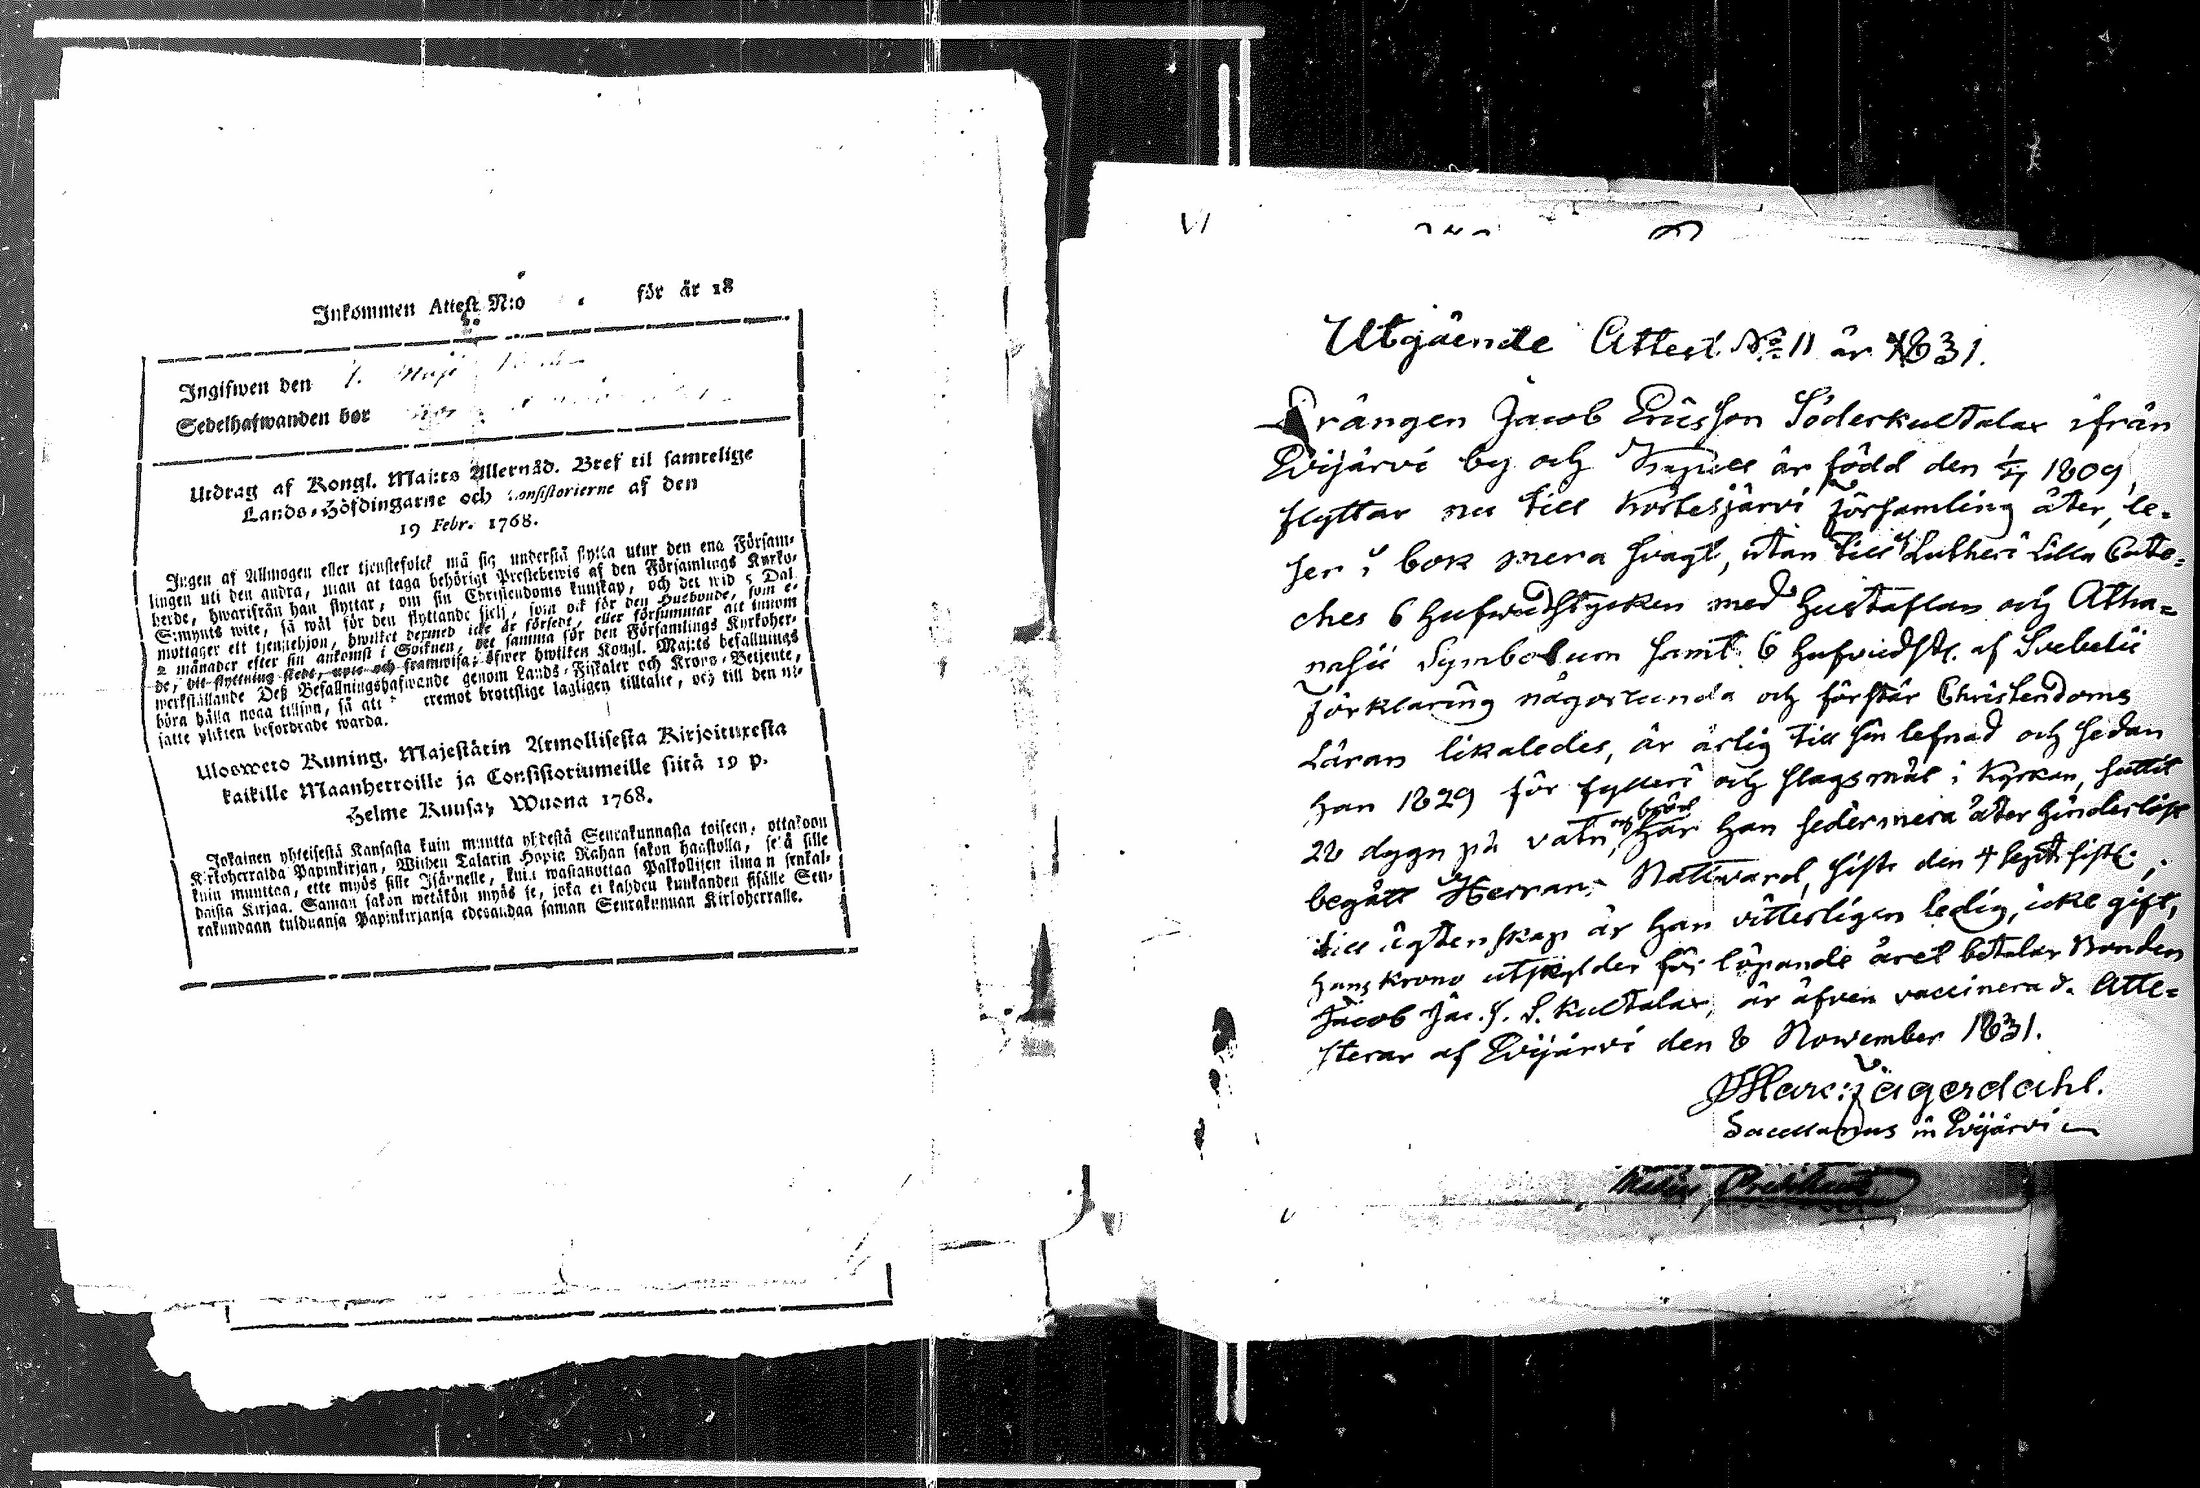 Inkommen Attest N:o för år 18
Ingifwen den 1. Maji
Sedelhafwanden bor
Utdrag af Kongl. Maj:ts Allernåd. Bref til samtelige
Lands-Höfdingarne och Consistorierne af den
19 Febr. 1768.
Ingen af Allmogen eller tjenstefolck må sig understå flytta utur den ena Försam-
lingen uti den andra, utan at taga behörigt Prestebewis af den Församlings Kyrko-
herde, hwarifrån han flyttar, om sin Christendoms kunskap, och det wid 5 Dal.
S:mynts wite, så wäl för den flyttande sielf, som ock för den Husbonde, som e-
mottager ett tjenstehjon, hwilket dermed icke är försedt, eller försummar att innom
2 månader efter sin ankomst i Soknen, det samma för den Församlings Kyrkoher-
de, dit flyttning skedt, upte och framwisa; öfwer hwilken Kongl. Maj:ts befallnings
werkställande Deß Befallningshafwande genom Lands-Fiskaler och Krono-Betjente,
böra hålla noga tillsyn, så att cremot brottslige lagligen tilltalte, och till den ut-
satte plikten befordrade warda.
Ulosweto Kuning. Majestätin Armollisesta Kirjoituxesta
kaikille Maanherroille ja Consistoriumeille siitä 19 p.
Helme Kuusa, Wuona 1768.
Jokainen yhteisestä Kansasta kuin muutta yhdestä Seurakunnasta toiseen, ottakoon
Kirkoherralda Papinkirjan, Wijden Talarin Hopia Rahan sakon haastolla, sekä sille
kuin muuttaa, ette myös sille Isännelle, kuin wastanottaa Palkollisen ilman senkal-
daista Kirjaa. Saman sakon wetäkön myös se, joka ei kahden kuukauden sisälle Seu-
rakundaan tulduansa Papinkirjansa edesandaa saman Seurakunnan Kirkoherralle.
VI
Utgående Attest No 11 år 1831.
Drängen Jacob Ericsson Söderkultalax ifrån
Evijärvi by och Kapell är född den 1/7 1809,
flyttar nu till Kortesjärvi församling åter, le-
ser i bok mera svagt, utan till Lutheri Lilla Cate-
ches 6 hufwudstycken med hustaflan och Atha-
nasii Symbolum samt 6 hufvudst. af Svebelii
Förklaring någorlunda och förstår Christendoms
Läran likaledes, är ärlig till sin lefnad och sedan
han 1829 för fylleri och slagsmål i Kyrkan, suttit
28 dygn på vatn och bröd, har han sedermera åter hinderlöst
begått Herrans Nattvard, sist den 4 Sept. sistl.,
till ägtenskap är han vitterligen ledig, icke gift,
hans Krono utskylder för löpande året betalar Bonden
Jacob Jac. S. S. Kultalax, är äfven vaccinerad. Atte-
sterar af Evijärvi den 8 November 1831.
Marc: Jägerdahl.
Sacellanus in Evijärvi